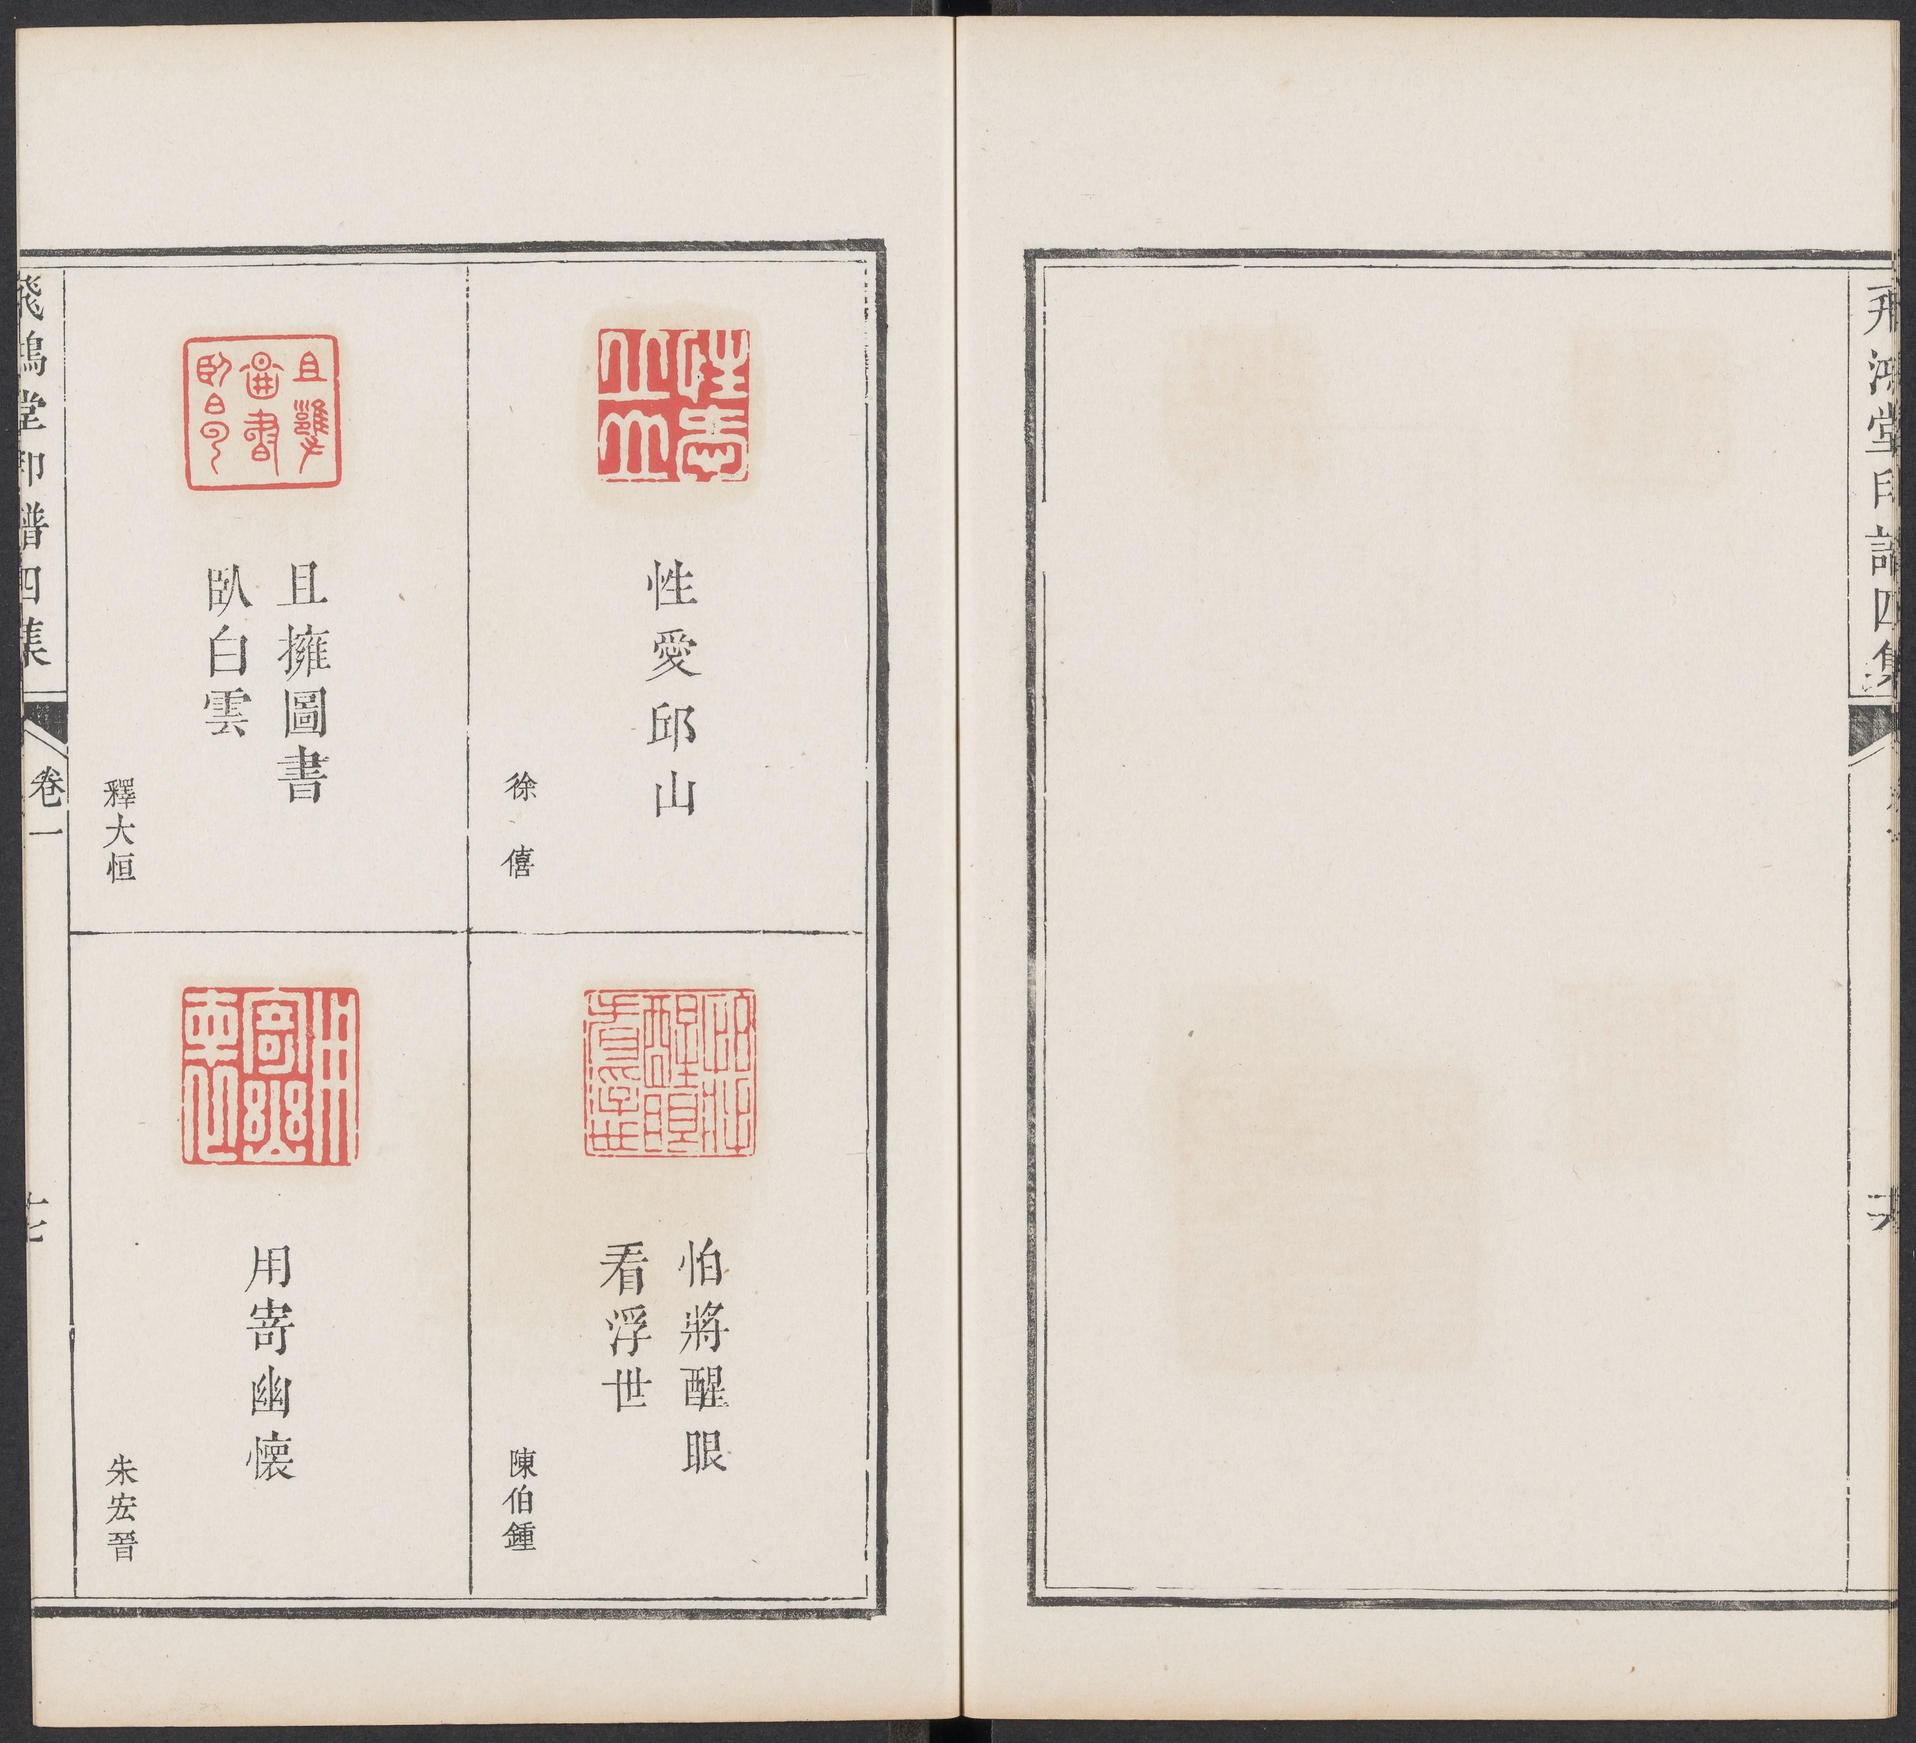 飛鴻堂印譜四集
性愛邱山
徐僖
怕將醒眼
看浮世
陳伯鍾
且擁圖書
臥白雲
釋大恒
用寄幽懷
朱宏晉
飛鴻堂印譜四集
卷一
十七